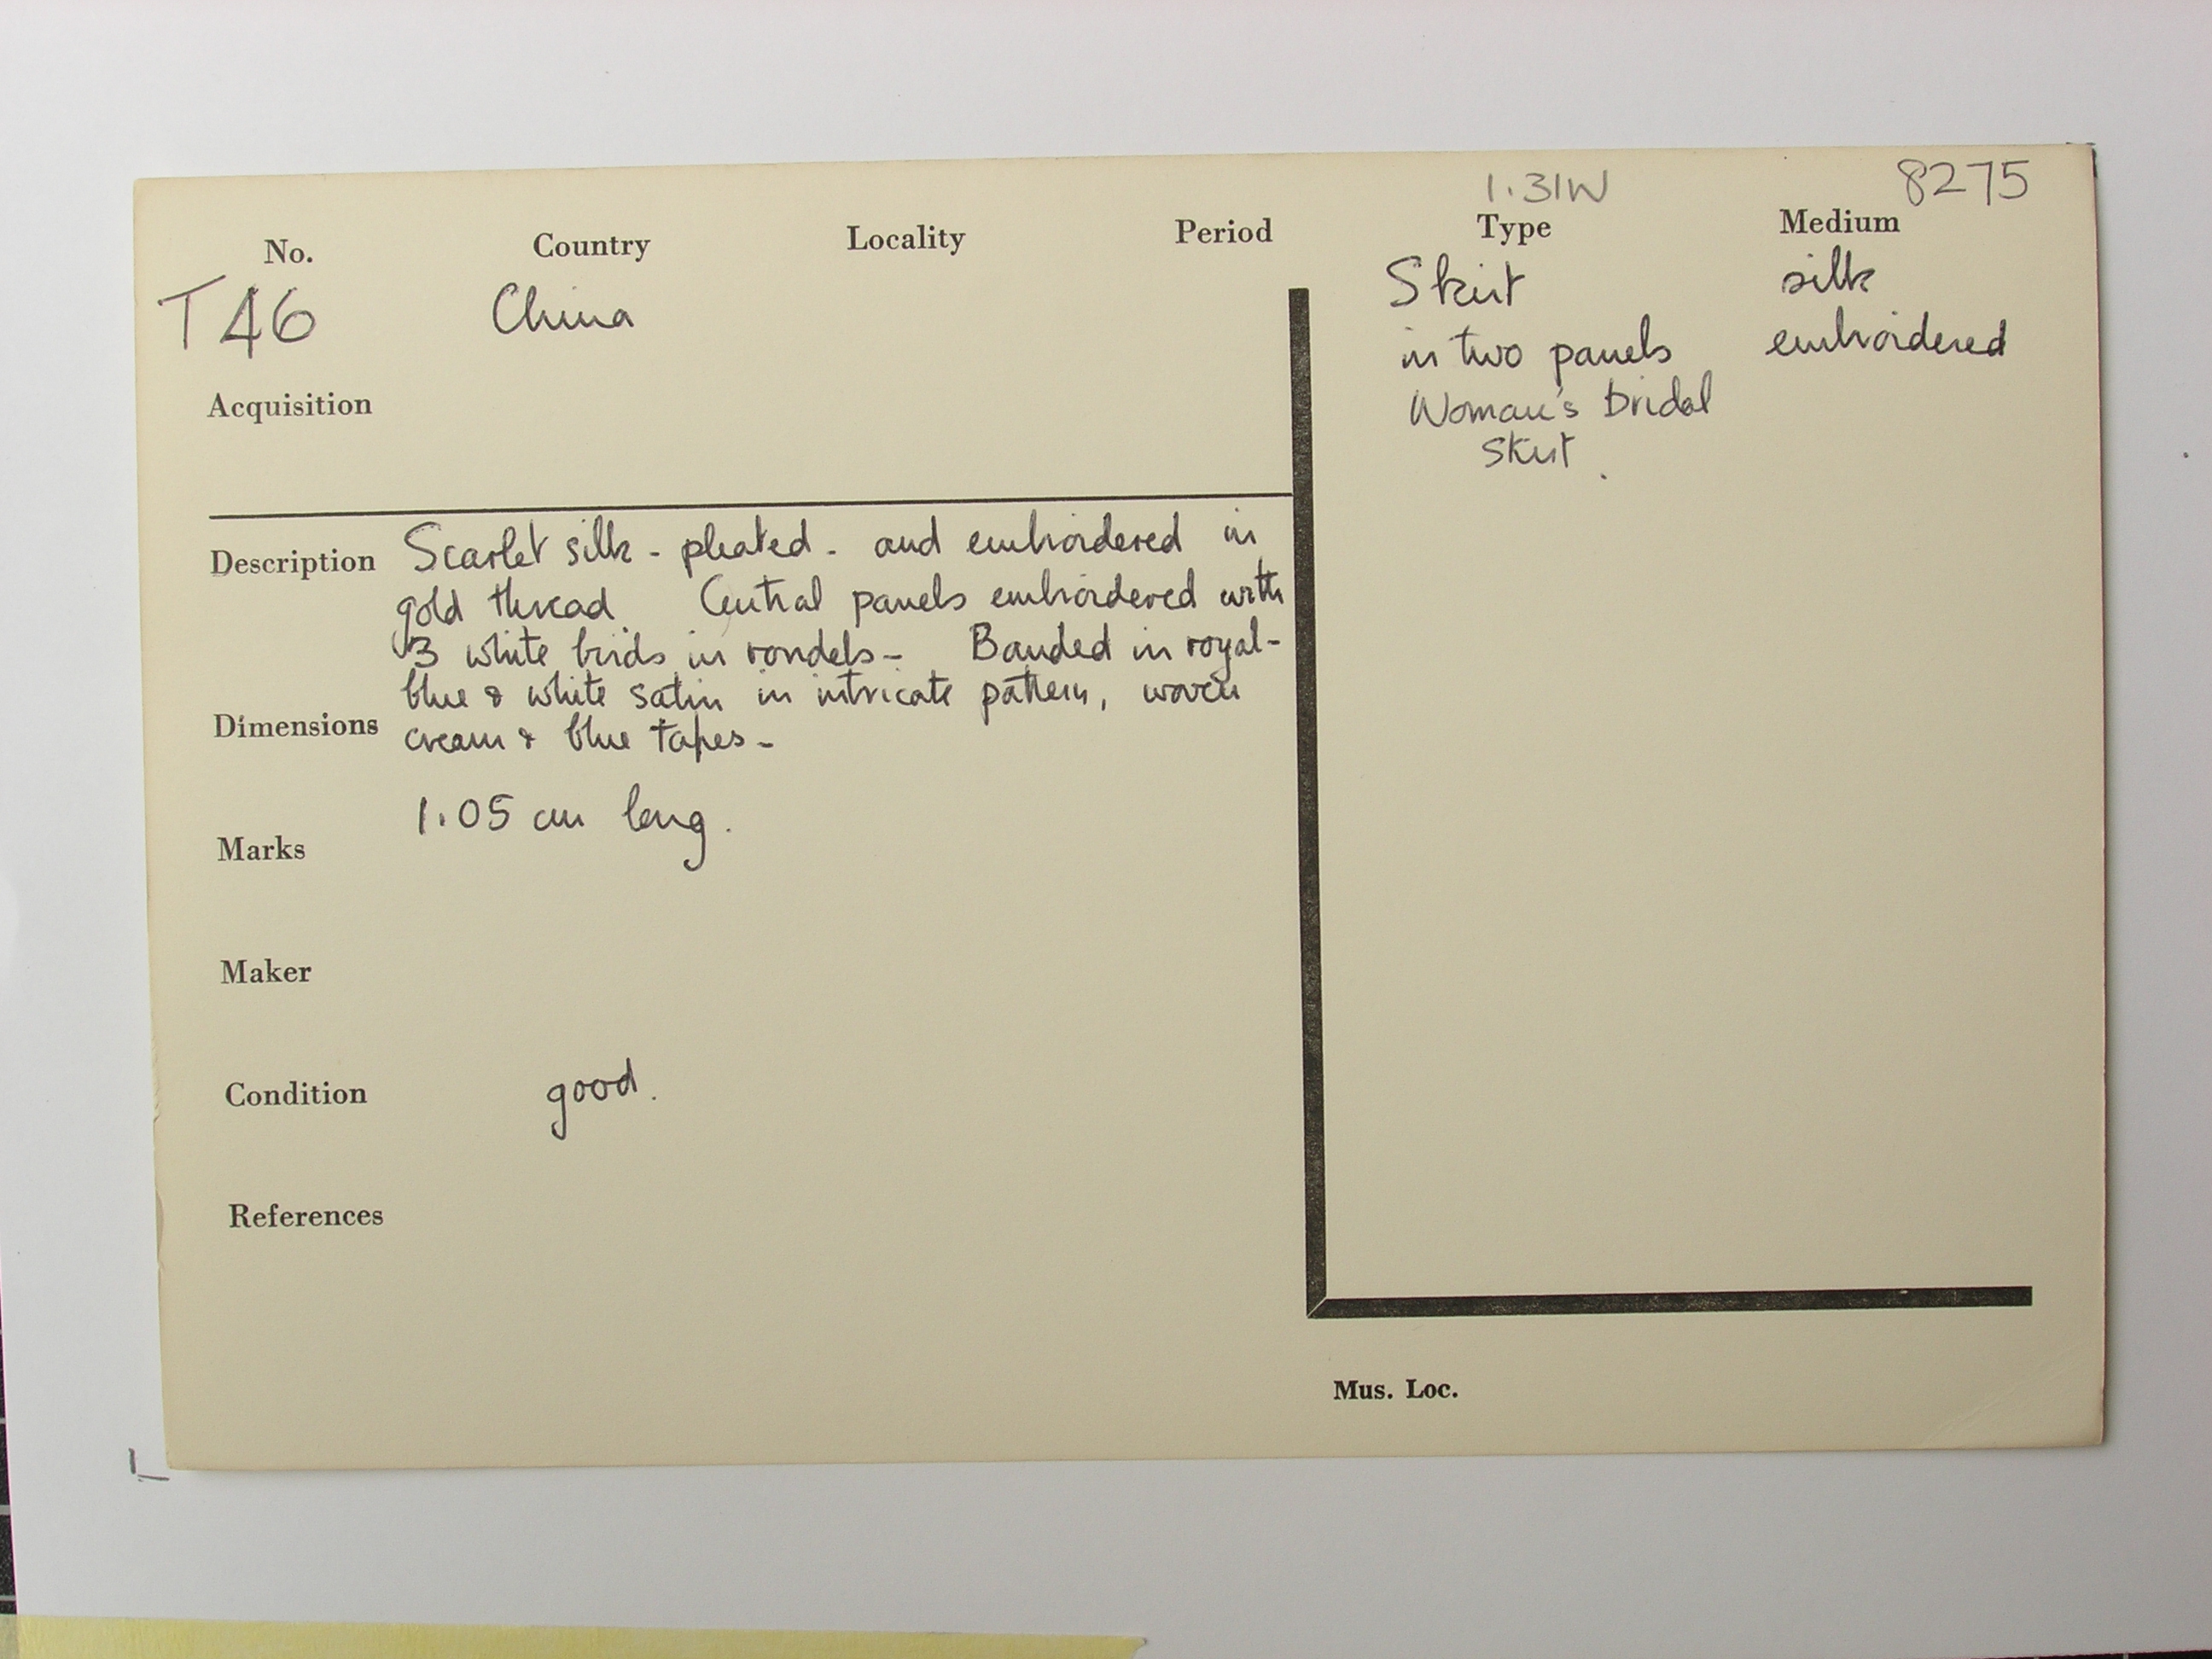 1.31W 8275
No. Country Locality Period Type Medium
T46 China Skirt silk
in two panels embroidered
Woman's bridal
skirt.
Acquisition
Description Scarlet silk - pleated - and embroidered in
gold thread. Central panels embroidered with
3 white birds in rondels - Banded in royal-
blue & white satin in intricate pattern, woven
Dimensions cream & blue tapes -
1.05 cm long.
Marks
Maker
Condition good.
References
Mus. Loc.